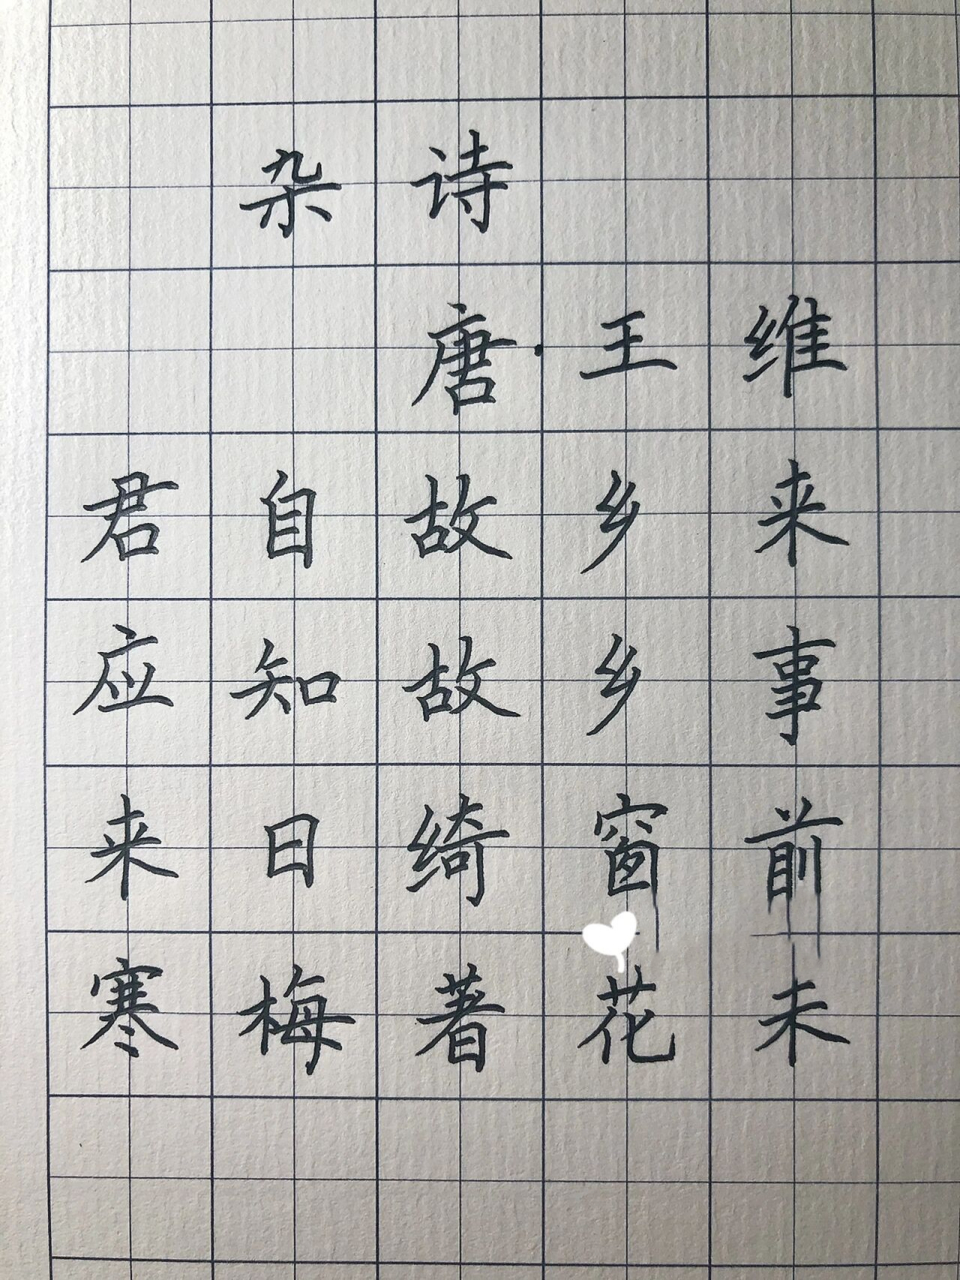 杂诗
唐·王维
君自故乡来
应知故乡事
来日绮窗前
寒梅著花未